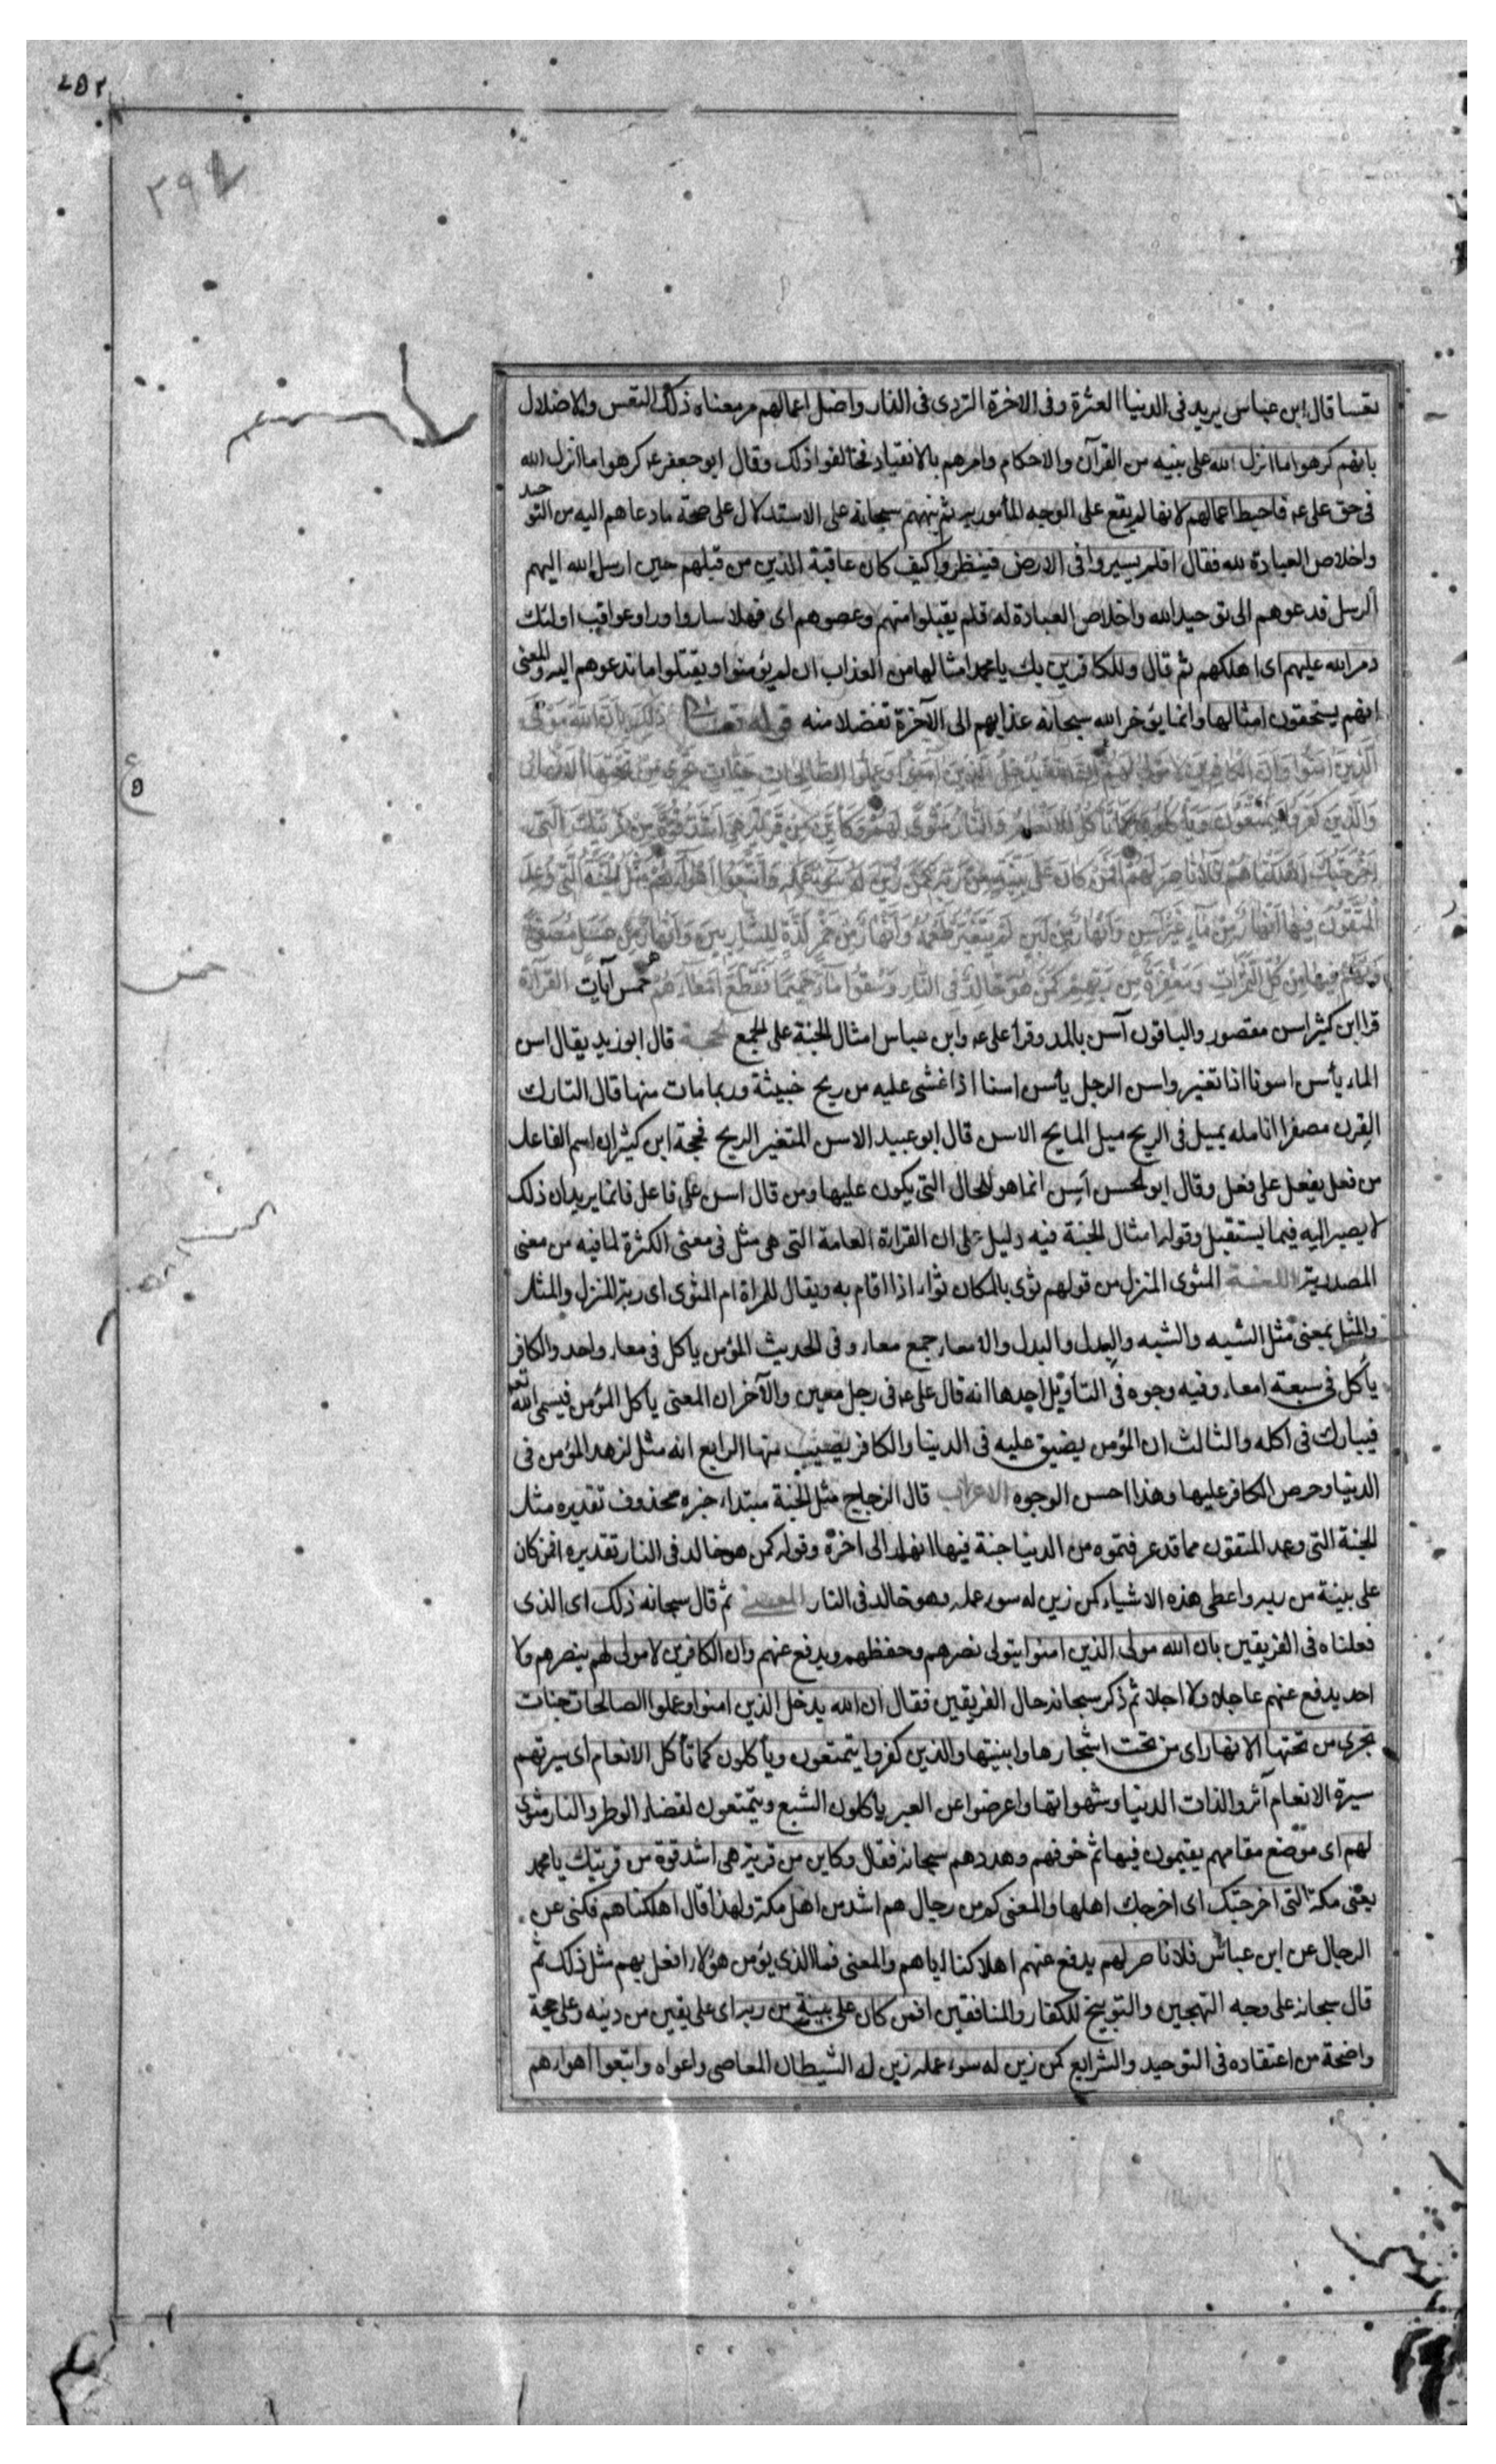 ٢٩٤
تعسا قال ابن عباس يريد فى الدنيا العثرة وفى الاخرة التردى فى النار واضل اعمالهم مر معناه ذلك التعس والاضلال
بانهم كرهوا ما انزل الله على نبيه من القرآن والاحكام وامرهم بالانقياد فخالفوا ذلك وقال ابو جعفر ع كرهوا ما انزل الله
فى حق على ع فاحبط اعمالهم لانها لم يقع على الوجه المأمور به ثم نبههم سبحانه على الاستدلال على صحة ما دعاهم اليه من التوحيد
واخلاص العبادة لله فقال افلم يسيروا فى الارض فينظروا كيف كان عاقبة الذين من قبلهم حين ارسل الله اليهم
الرسل فدعوهم الى توحيد الله واخلاص العبادة له فلم يقبلوا منهم وعصوهم اى فهلا ساروا وراوا عواقب اولئك
دمر الله عليهم اى اهلكهم ثم قال وللكافرين بك يا محمد امثالها من العذاب ان لم يؤمنوا ويقبلوا ما تدعوهم اليه والمعنى
انهم يستحقون امثالها وانما يؤخر الله سبحانه عذابهم الى الآخرة تفضلا منه قوله تعالى ذَلِكَ بِأَنَّ اللَّهَ مَوْلَى
الَّذِينَ آمَنُوا وَأَنَّ الْكَافِرِينَ لَا مَوْلَى لَهُمْ إِنَّ اللَّهَ يُدْخِلُ الَّذِينَ آمَنُوا وَعَمِلُوا الصَّالِحَاتِ جَنَّاتٍ تَجْرِي مِنْ تَحْتِهَا الْأَنْهَارُ
وَالَّذِينَ كَفَرُوا يَتَمَتَّعُونَ وَيَأْكُلُونَ كَمَا تَأْكُلُ الْأَنْعَامُ وَالنَّارُ مَثْوًى لَهُمْ وَكَأَيِّنْ مِنْ قَرْيَةٍ هِيَ أَشَدُّ قُوَّةً مِنْ قَرْيَتِكَ الَّتِي
أَخْرَجَتْكَ أَهْلَكْنَاهُمْ فَلَا نَاصِرَ لَهُمْ أَفَمَنْ كَانَ عَلَى بَيِّنَةٍ مِنْ رَبِّهِ كَمَنْ زُيِّنَ لَهُ سُوءُ عَمَلِهِ وَاتَّبَعُوا أَهْوَاءَهُمْ مَثَلُ الْجَنَّةِ الَّتِي وُعِدَ
الْمُتَّقُونَ فِيهَا أَنْهَارٌ مِنْ مَاءٍ غَيْرِ آسِنٍ وَأَنْهَارٌ مِنْ لَبَنٍ لَمْ يَتَغَيَّرْ طَعْمُهُ وَأَنْهَارٌ مِنْ خَمْرٍ لَذَّةٍ لِلشَّارِبِينَ وَأَنْهَارٌ مِنْ عَسَلٍ مُصَفًّى
وَلَهُمْ فِيهَا مِنْ كُلِّ الثَّمَرَاتِ وَمَغْفِرَةٌ مِنْ رَبِّهِمْ كَمَنْ هُوَ خَالِدٌ فِي النَّارِ وَسُقُوا مَاءً حَمِيمًا فَقَطَّعَ أَمْعَاءَهُمْ خمس آيات القرآءة
قرا ابن كثير اسن مقصور والباقون آسن بالمد وقرا على ع وابن عباس امثال الجنة على الجمع الحجة قال ابو زيد يقال اسن
الماء يأسن اسونا اذا تغير واسن الرجل يأسن اسنا اذا غشى عليه من ريح خبيثة وربما مات منها قال التارك
القرن مصفرا انامله يميل فى الريح ميل المايح الاسن قال ابو عبيد الاسن المتغير الريح فحجة ابن كثير ان اسم الفاعل
من فعل يفعل على فعل وقال ابو الحسن اسن انما هو للحال التى يكون عليها ومن قال اسن على فاعل فانما يريد ان ذلك
لا يصير اليه فيما يستقبل وقوله امثال الجنة فيه دليل على ان القراءة العامة التى هى مثل فى معنى الكثرة لما فيه من معنى
المصدرية اللغة المثوى المنزل من قولهم ثوى بالمكان ثواء اذا اقام به ويقال للمراة ام المثوى اى ربة المنزل والمثل
والمثل بمعنى مثل الشبه والشبه والبدل والبدل والامعاء جمع معاء وفى الحديث المؤمن ياكل فى معاء واحد والكافر
يأكل فى سبعة امعاء وفيه وجوه فى التأويل احدها انه قال على ع فى رجل معين والآخر ان المعنى ياكل المؤمن فيسمى الله تعه
فيبارك فى اكله والثالث ان المؤمن يضيق عليه فى الدنيا والكافر يصيب منها الرابع انه مثل لزهد المؤمن فى
الدنيا وحرص الكافر عليها وهذا احسن الوجوه الاعراب قال الزجاج مثل الجنة مبتداء خبره محذوف تقديره مثل
الجنة التى وعد المتقون مما قد عرفتموه من الدنيا جنة فيها انهار الى اخره وقوله كمن هو خالد فى النار تقديره افمن كان
على بينة من ربه واعطى هذه الاشياء كمن زين له سوء عمله وهو خالد فى النار المعنى ثم قال سبحانه ذلك اى الذى
فعلناه فى الفريقين بان الله مولى الذين امنوا يتولى نصرهم وحفظهم ويدفع عنهم وان الكافرين لا مولى لهم ينصرهم ولا
احد يدفع عنهم عاجلا ولا اجلا ثم ذكر سبحانه حال الفريقين فقال ان الله يدخل الذين امنوا وعملوا الصالحات جنات
تجرى من تحتها الانهار اى من تحت اشجارها وابنيتها والذين كفروا يتمتعون ويأكلون كما تأكل الانعام اى سيرتهم
سيرة الانعام آثروا لذات الدنيا وشهواتها واعرضوا عن العبر ياكلون للشبع ويتمتعون لقضاء الوطر والنار مثوى
لهم اى موضع مقامهم يقيمون فيها ثم خوفهم وهددهم سبحانه فقال وكاين من قرية هى اشد قوة من قريتك يا محمد
يعنى مكة التى اخرجتك اى اخرجك اهلها والمعنى كم من رجال هم اشد من اهل مكة ولهذا قال اهلكناهم فكنى عن
الرجال عن ابن عباس فلا ناصر لهم يدفع عنهم اهلاكنا اياهم والمعنى فما الذى يؤمن هؤلاء ان افعل بهم مثل ذلك ثم
قال سبحانه على وجه التهجين والتوبيخ للكفار والمنافقين افمن كان على بينة من ربه اى على يقين من دينه وعلى حجة
واضحة من اعتقاده فى التوحيد والشرايع كمن زين له سوء عمله زين له الشيطان المعاصى واغواه واتبعوا اهواءهم